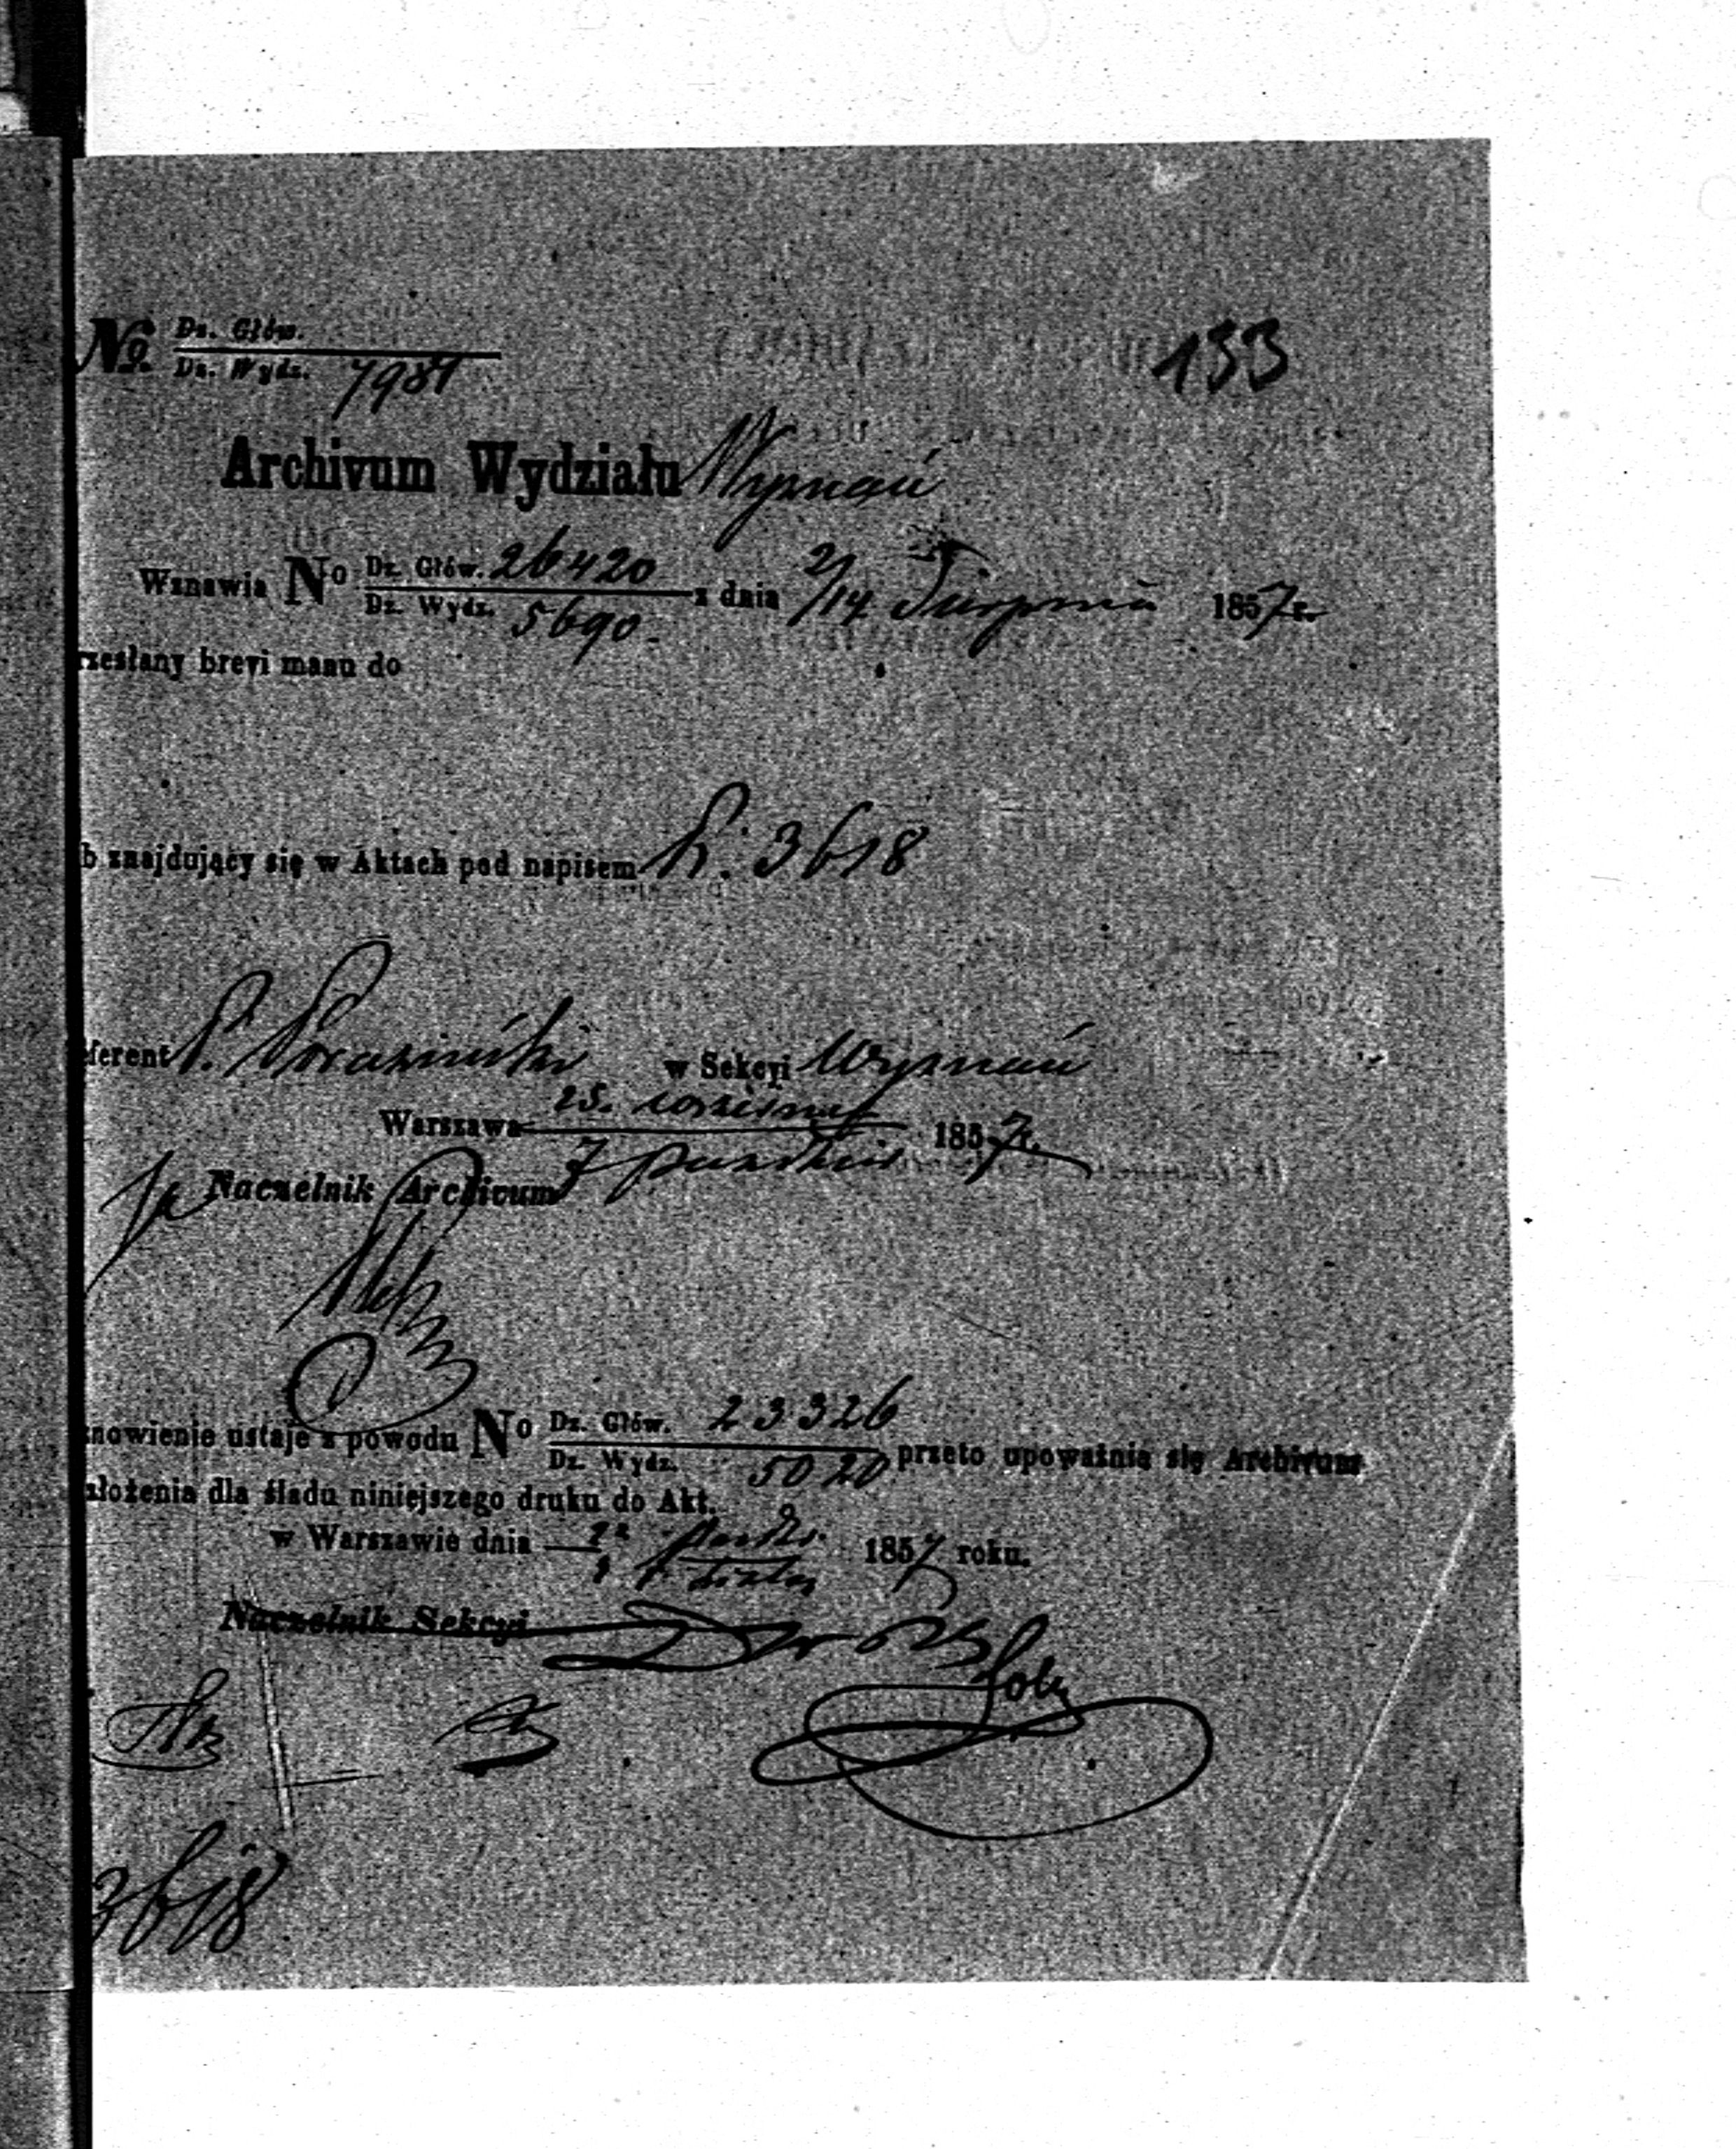 133
No. Dz. Głów.
Dz. Wydz. 7981
Archivum Wydziału Wyznań
Wznawia No Dz. Głów. 26420 z dnia 2/14 Sierpnia 1857 r.
Dz. Wydz. 5690.
rzesłany brevi manu do
b znajdujący się w Aktach pod napisem K: 3618
ferent P. w Sekcyi Wyznań
Warszawa 25. września 1857 r.
7 paźdźier
Naczelnik Archivum
nowienie ustaje z powodu No Dz. Głów. 23326 przeto upoważnia się Archivum
Dz. Wydz. 5020
ałożenia dla śladu niniejszego druku do Akt.
w Warszawie dnia 1857 roku.
Naczelnik Sekcyi
3618